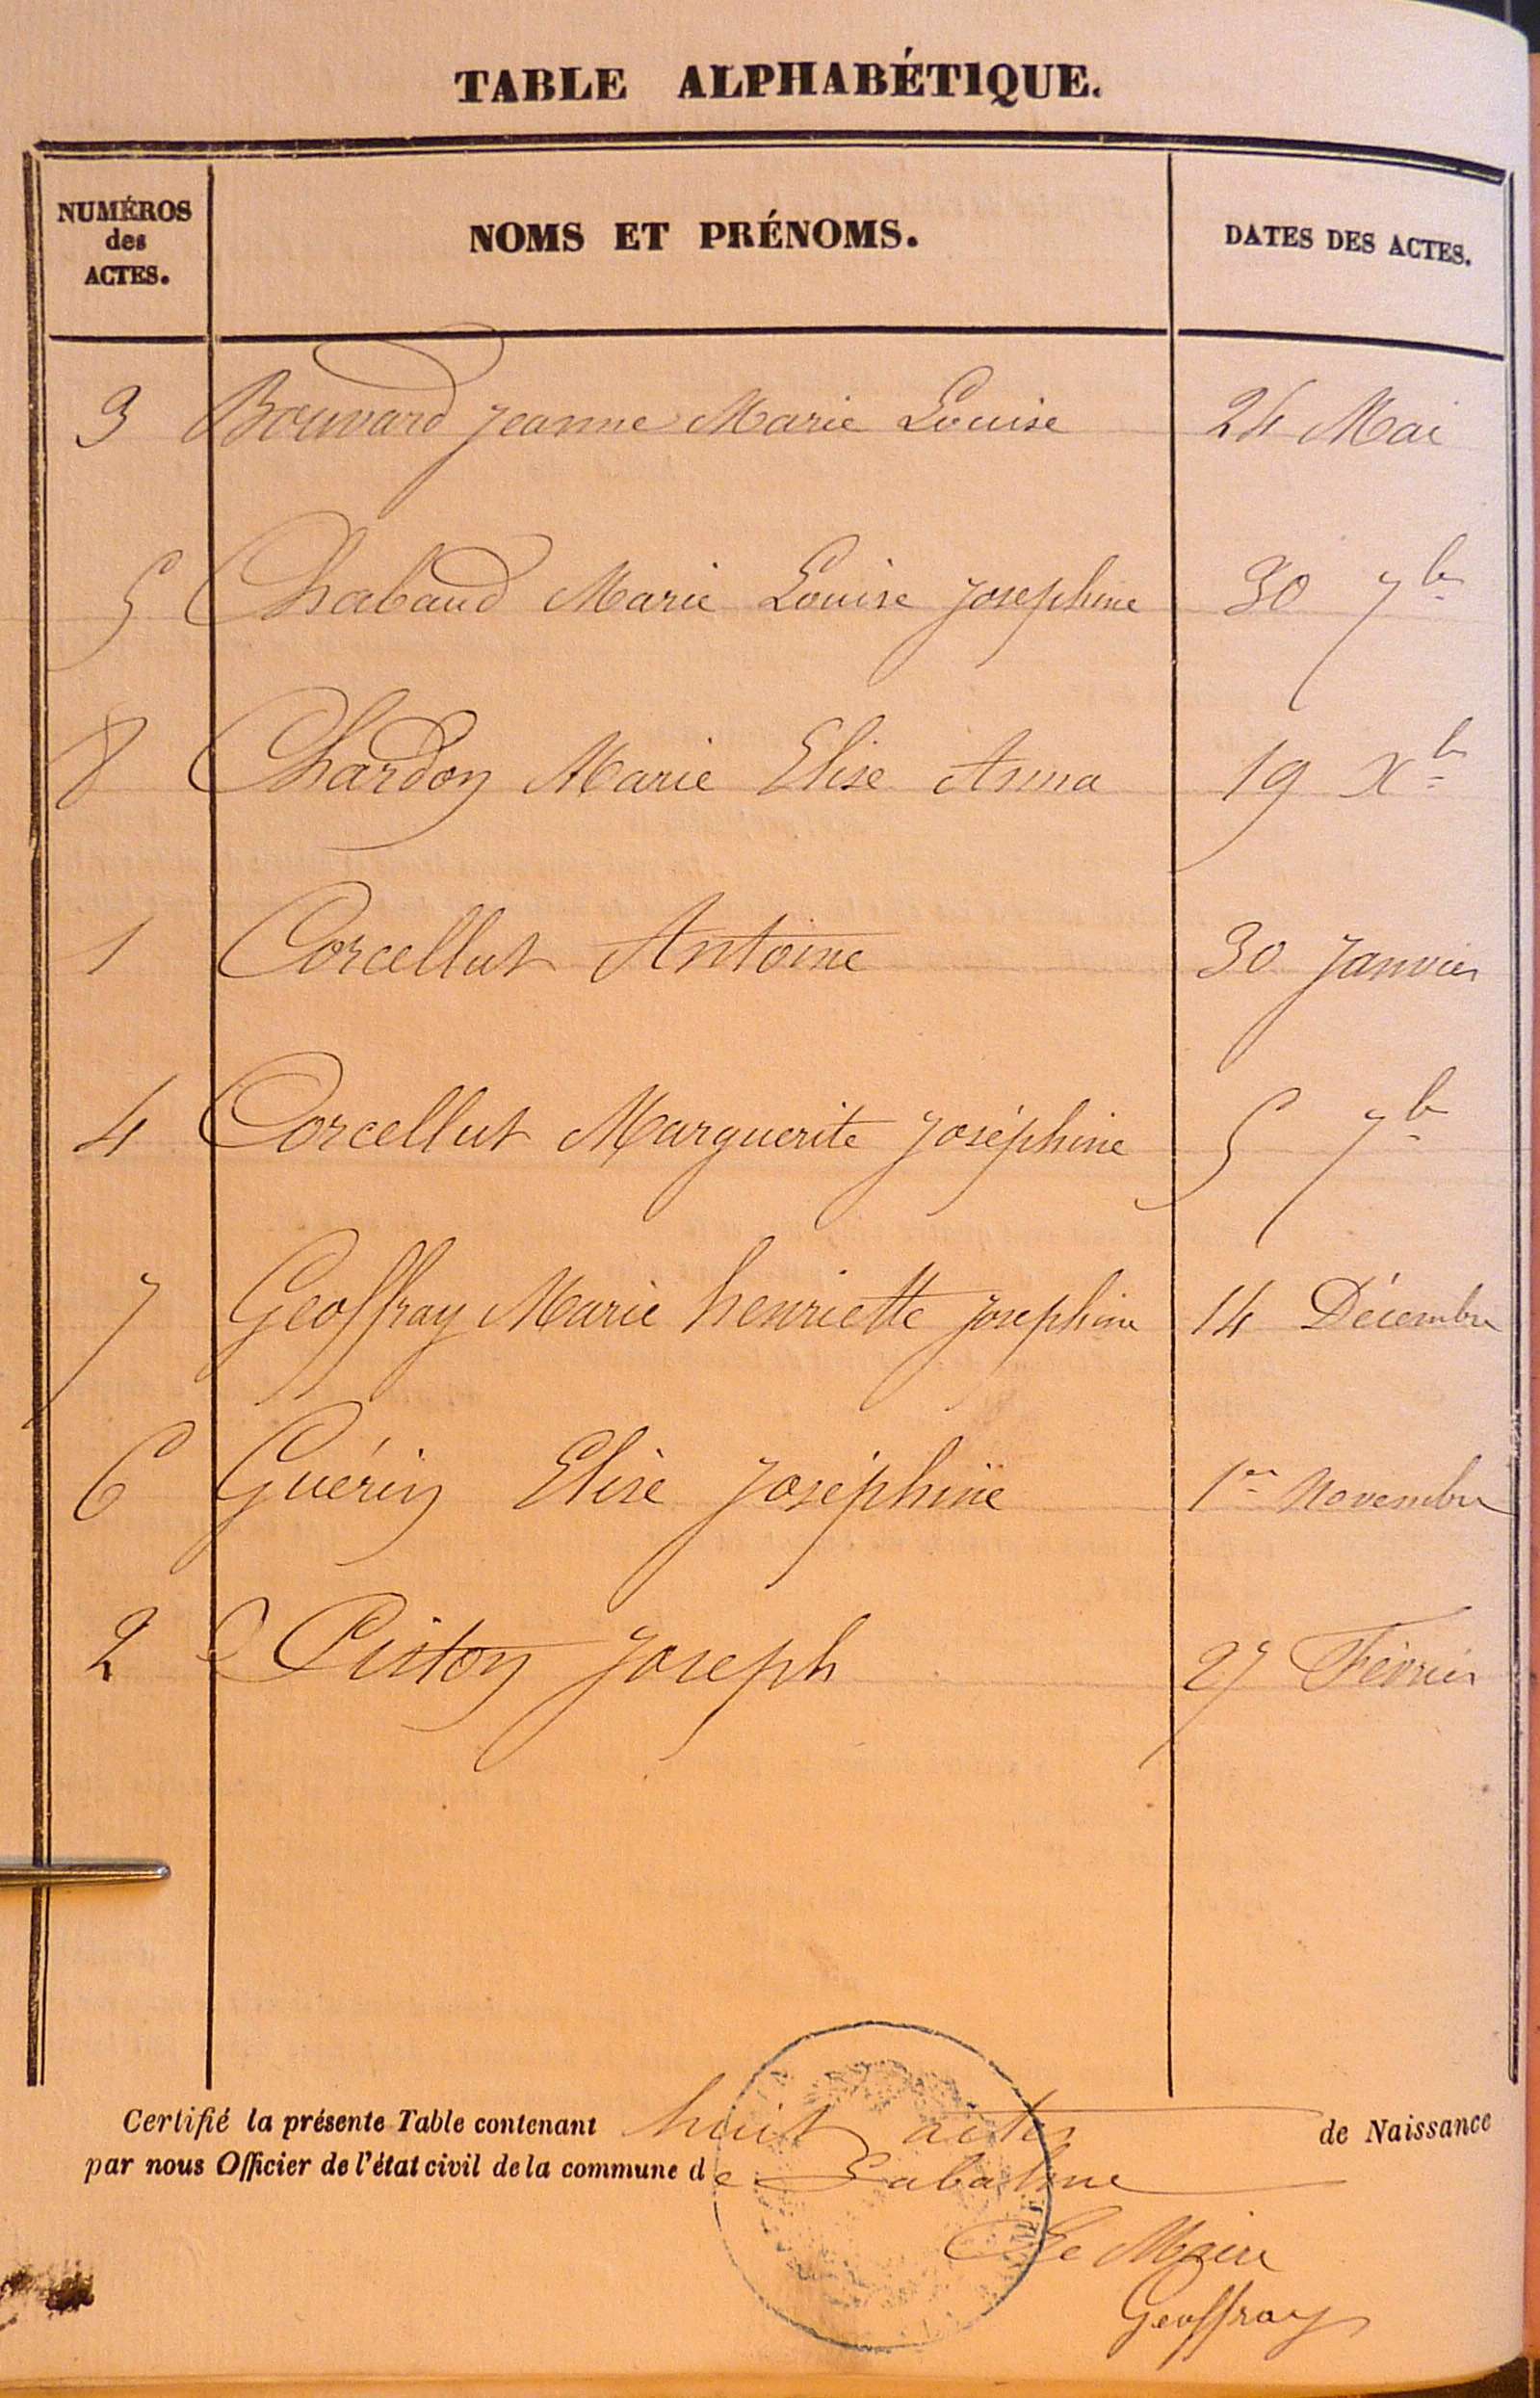 TABLE ALPHABÉTIQUE.
NUMÉROS des ACTES. NOMS ET PRÉNOMS. DATES DES ACTES.
3 Bouvard Jeanne Marie Louise 24 Mai
5 Chabaud Marie Louise Josephine 30 7b
8 Chardon Marie Elise Anna 19 Xb
1 Corcellut Antoine 30 Janvier
4 Corcellut Marguerite Joséphine 5 7b
7 Geoffray Marie henriette Josephine 14 Décembre
6 Guérin Elise Joséphine 1er Novembre
2 Piston Joseph 27 Février
Certifié la présente Table contenant huit actes de Naissance
par nous Officier de l'état civil de la commune de Labalme
Le Maire
Geoffray